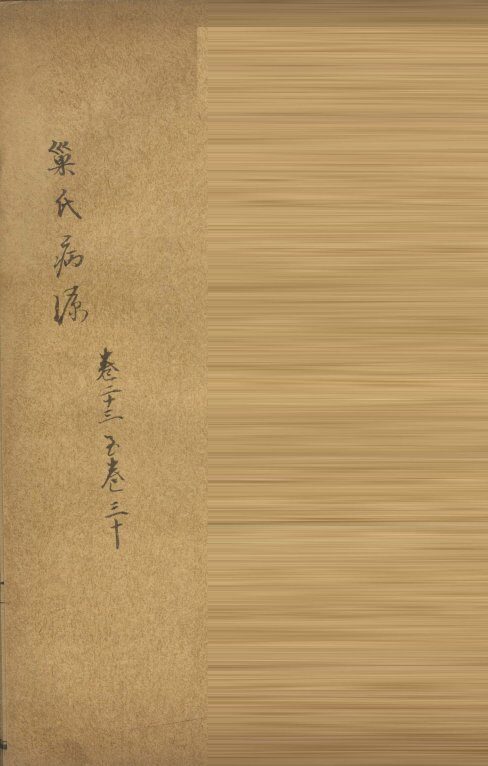 巢氏病源
卷二十三至卷三十